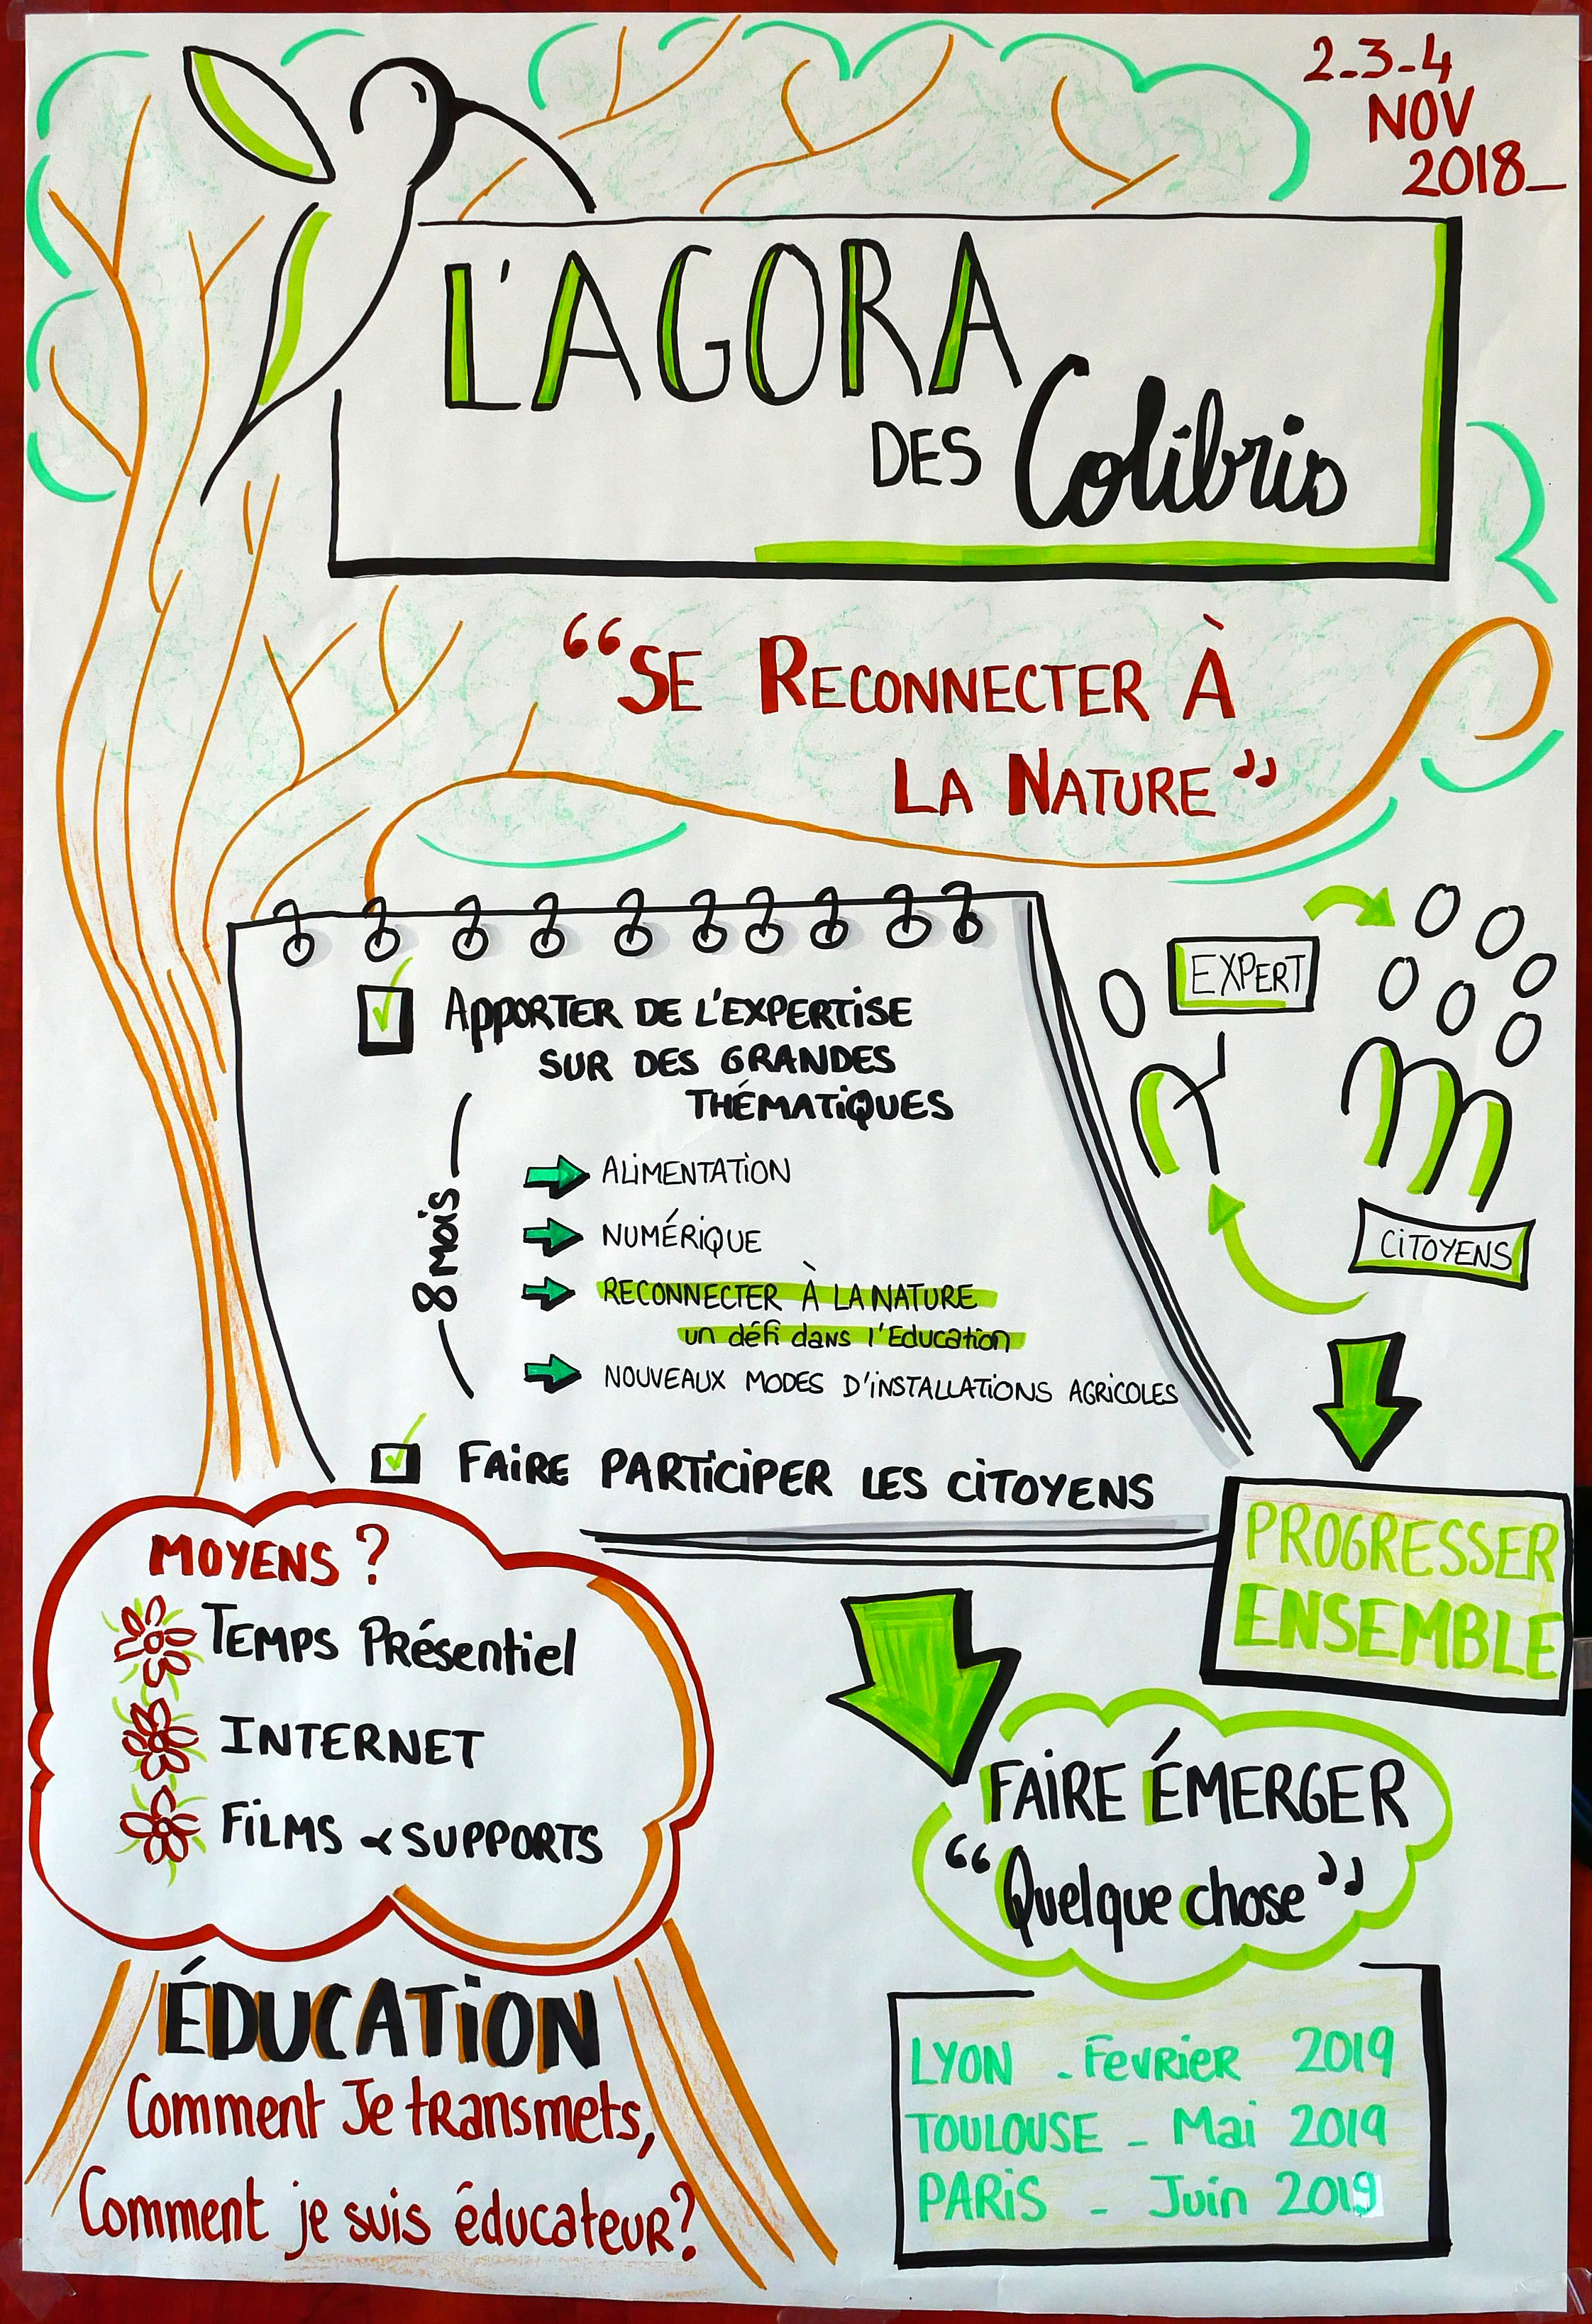 2-3-4
NOV
2018_
L'AGORA
DES Colibris
“SE RECONNECTER À
LA NATURE”
APPORTER DE L'EXPERTISE
SUR DES GRANDES
THÉMATIQUES
8 mois
ALIMENTATION
NUMÉRIQUE
RECONNECTER À LA NATURE
un défi dans l'Education
NOUVEAUX MODES D'INSTALLATIONS AGRICOLES
FAIRE PARTICIPER LES CITOYENS
EXPERT
CITOYENS
PROGRESSER
ENSEMBLE
MOYENS ?
TEMPS Présentiel
INTERNET
FILMS & SUPPORTS
FAIRE ÉMERGER
“Quelque chose”
ÉDUCATION
Comment Je transmets,
Comment je suis éducateur?
LYON - Fevrier 2019
TOULOUSE - Mai 2019
PARIS - Juin 2019